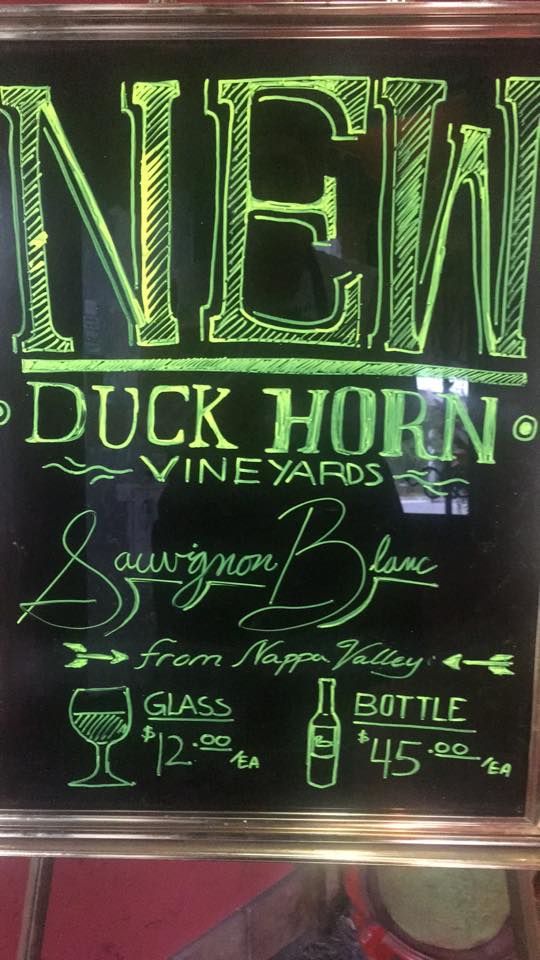 NEW
DUCK HORN
VINEYARDS
Sauvignon Blanc
from Nappa Valley
GLASS
$12.00/EA
BOTTLE
$45.00/EA